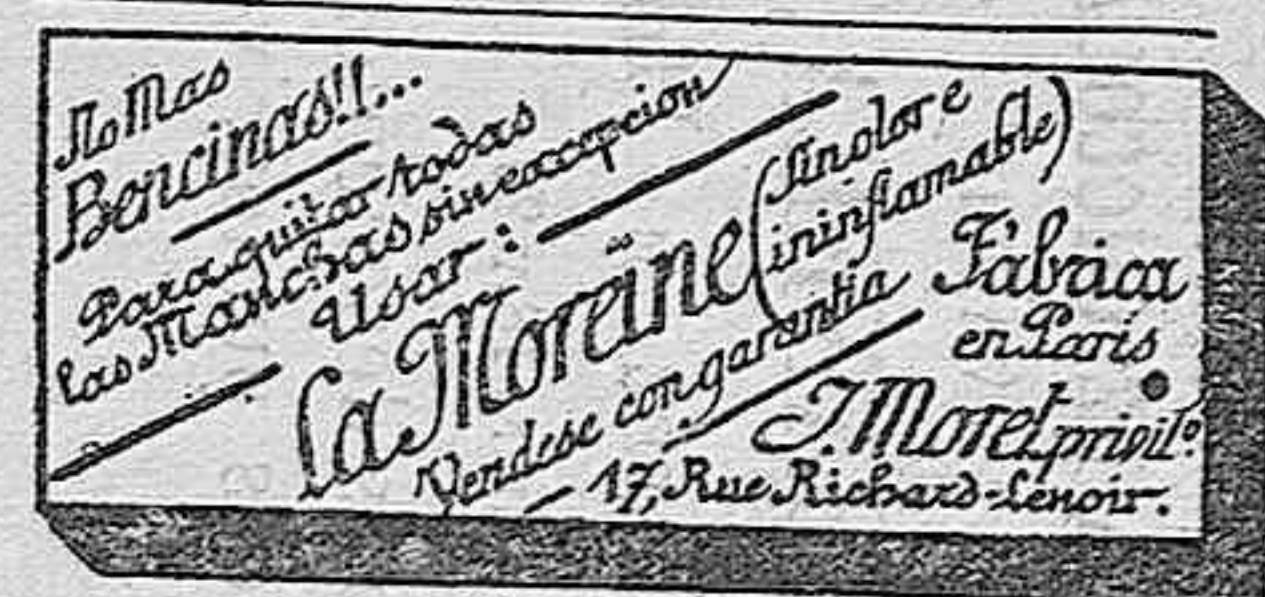 No Mas
Bencinas!!...
Para quitar todas
las Manchas sin excepcion
Usar:
La Moreïne (sin olor e
ininflamable)
Vendese con garantia
Fábrica
en Paris
J. Moret privilº
17, Rue Richard-Lenoir.